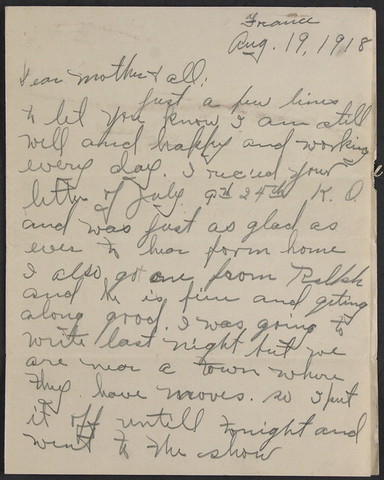 France
Aug. 19, 1918
Dear Mother & all:
just a few lines
to let you know I am still
well and happy and working
every day. I recied your
letter of July 24th K. O.
and was just as glad as
ever to hear form home
I also got one from Ralph
and he is fine and geting
along good. I was going to
write last night but we
are near a town where
they have moves. so I put
it off untill tonight and
went to the show